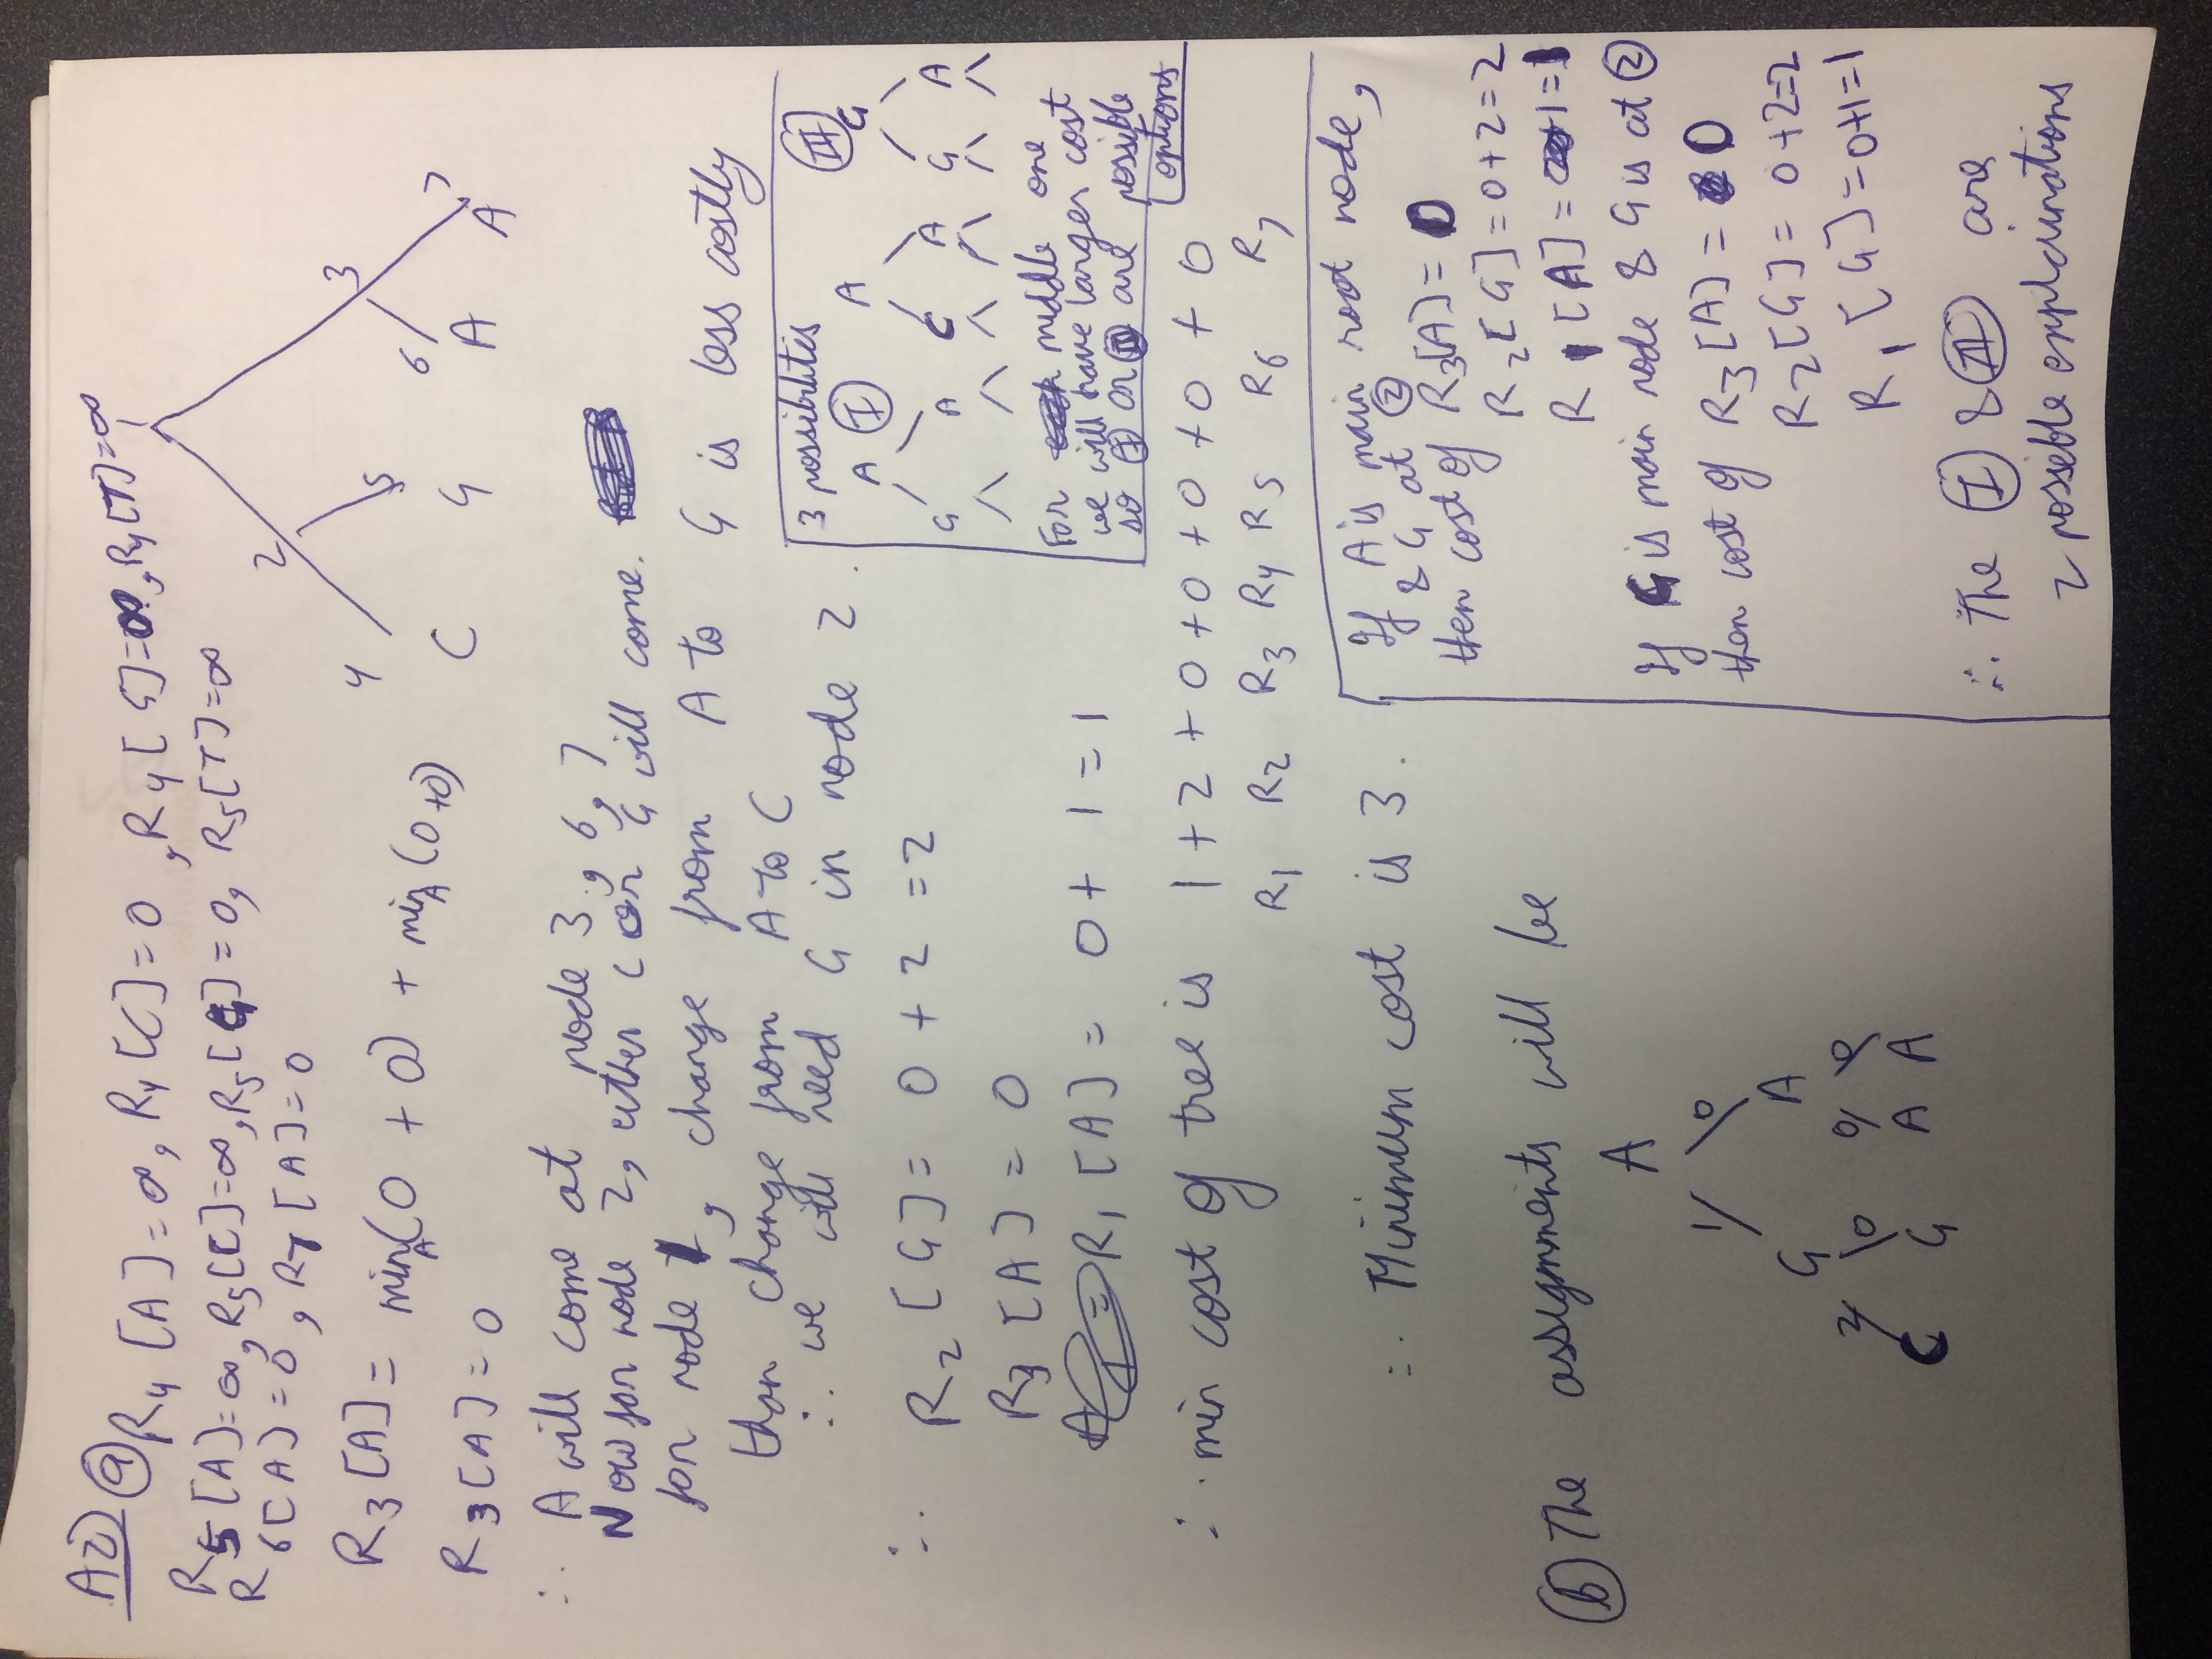 A2) (a) R4 [A] = ∞, R4 [C] = 0, R4 [G] = ∞, R4 [T] = ∞
R5 [A] = ∞, R5 [C] = ∞, R5 [G] = 0, R5 [T] = ∞
R6 [A] = 0, R7 [A] = 0
1
2
3
4
5
6
7
C G A A
R3 [A] = min A (0 + 0) + min A (0+0)
R3 [A] = 0
∴ A will come at node 3, 6, 7
Now for node 2, either C or G will come.
for node 1, change from A to G is less costly
than change from A to C
∴ we will need G in node 2.
∴ R2 [G] = 0 + 2 = 2
R3 [A] = 0
R1 [A] = 0 + 1 = 1
3 possibilities
A (I) A (III) G
G A C A G A
For middle one
we will have larger cost
so (I) or (III) are possible
options
∴ min cost of tree is 1 + 2 + 0 + 0 + 0 + 0 + 0
R1 R2 R3 R4 R5 R6 R7
∴ Minimum cost is 3.
(b) The assignments will be
A
1 0
G A
2 0 0 0
C G A A
If A is main root node,
& G at (2)
then cost of R3[A] = 0
R2 [G] = 0+2 = 2
R1 [A] = +1 = 1
If G is main node & G is at (2)
then cost of R3 [A] = 0
R2 [G] = 0+2=2
R1 [G] = 0+1=1
∴ The (I) & (III) are
2 possible explainations